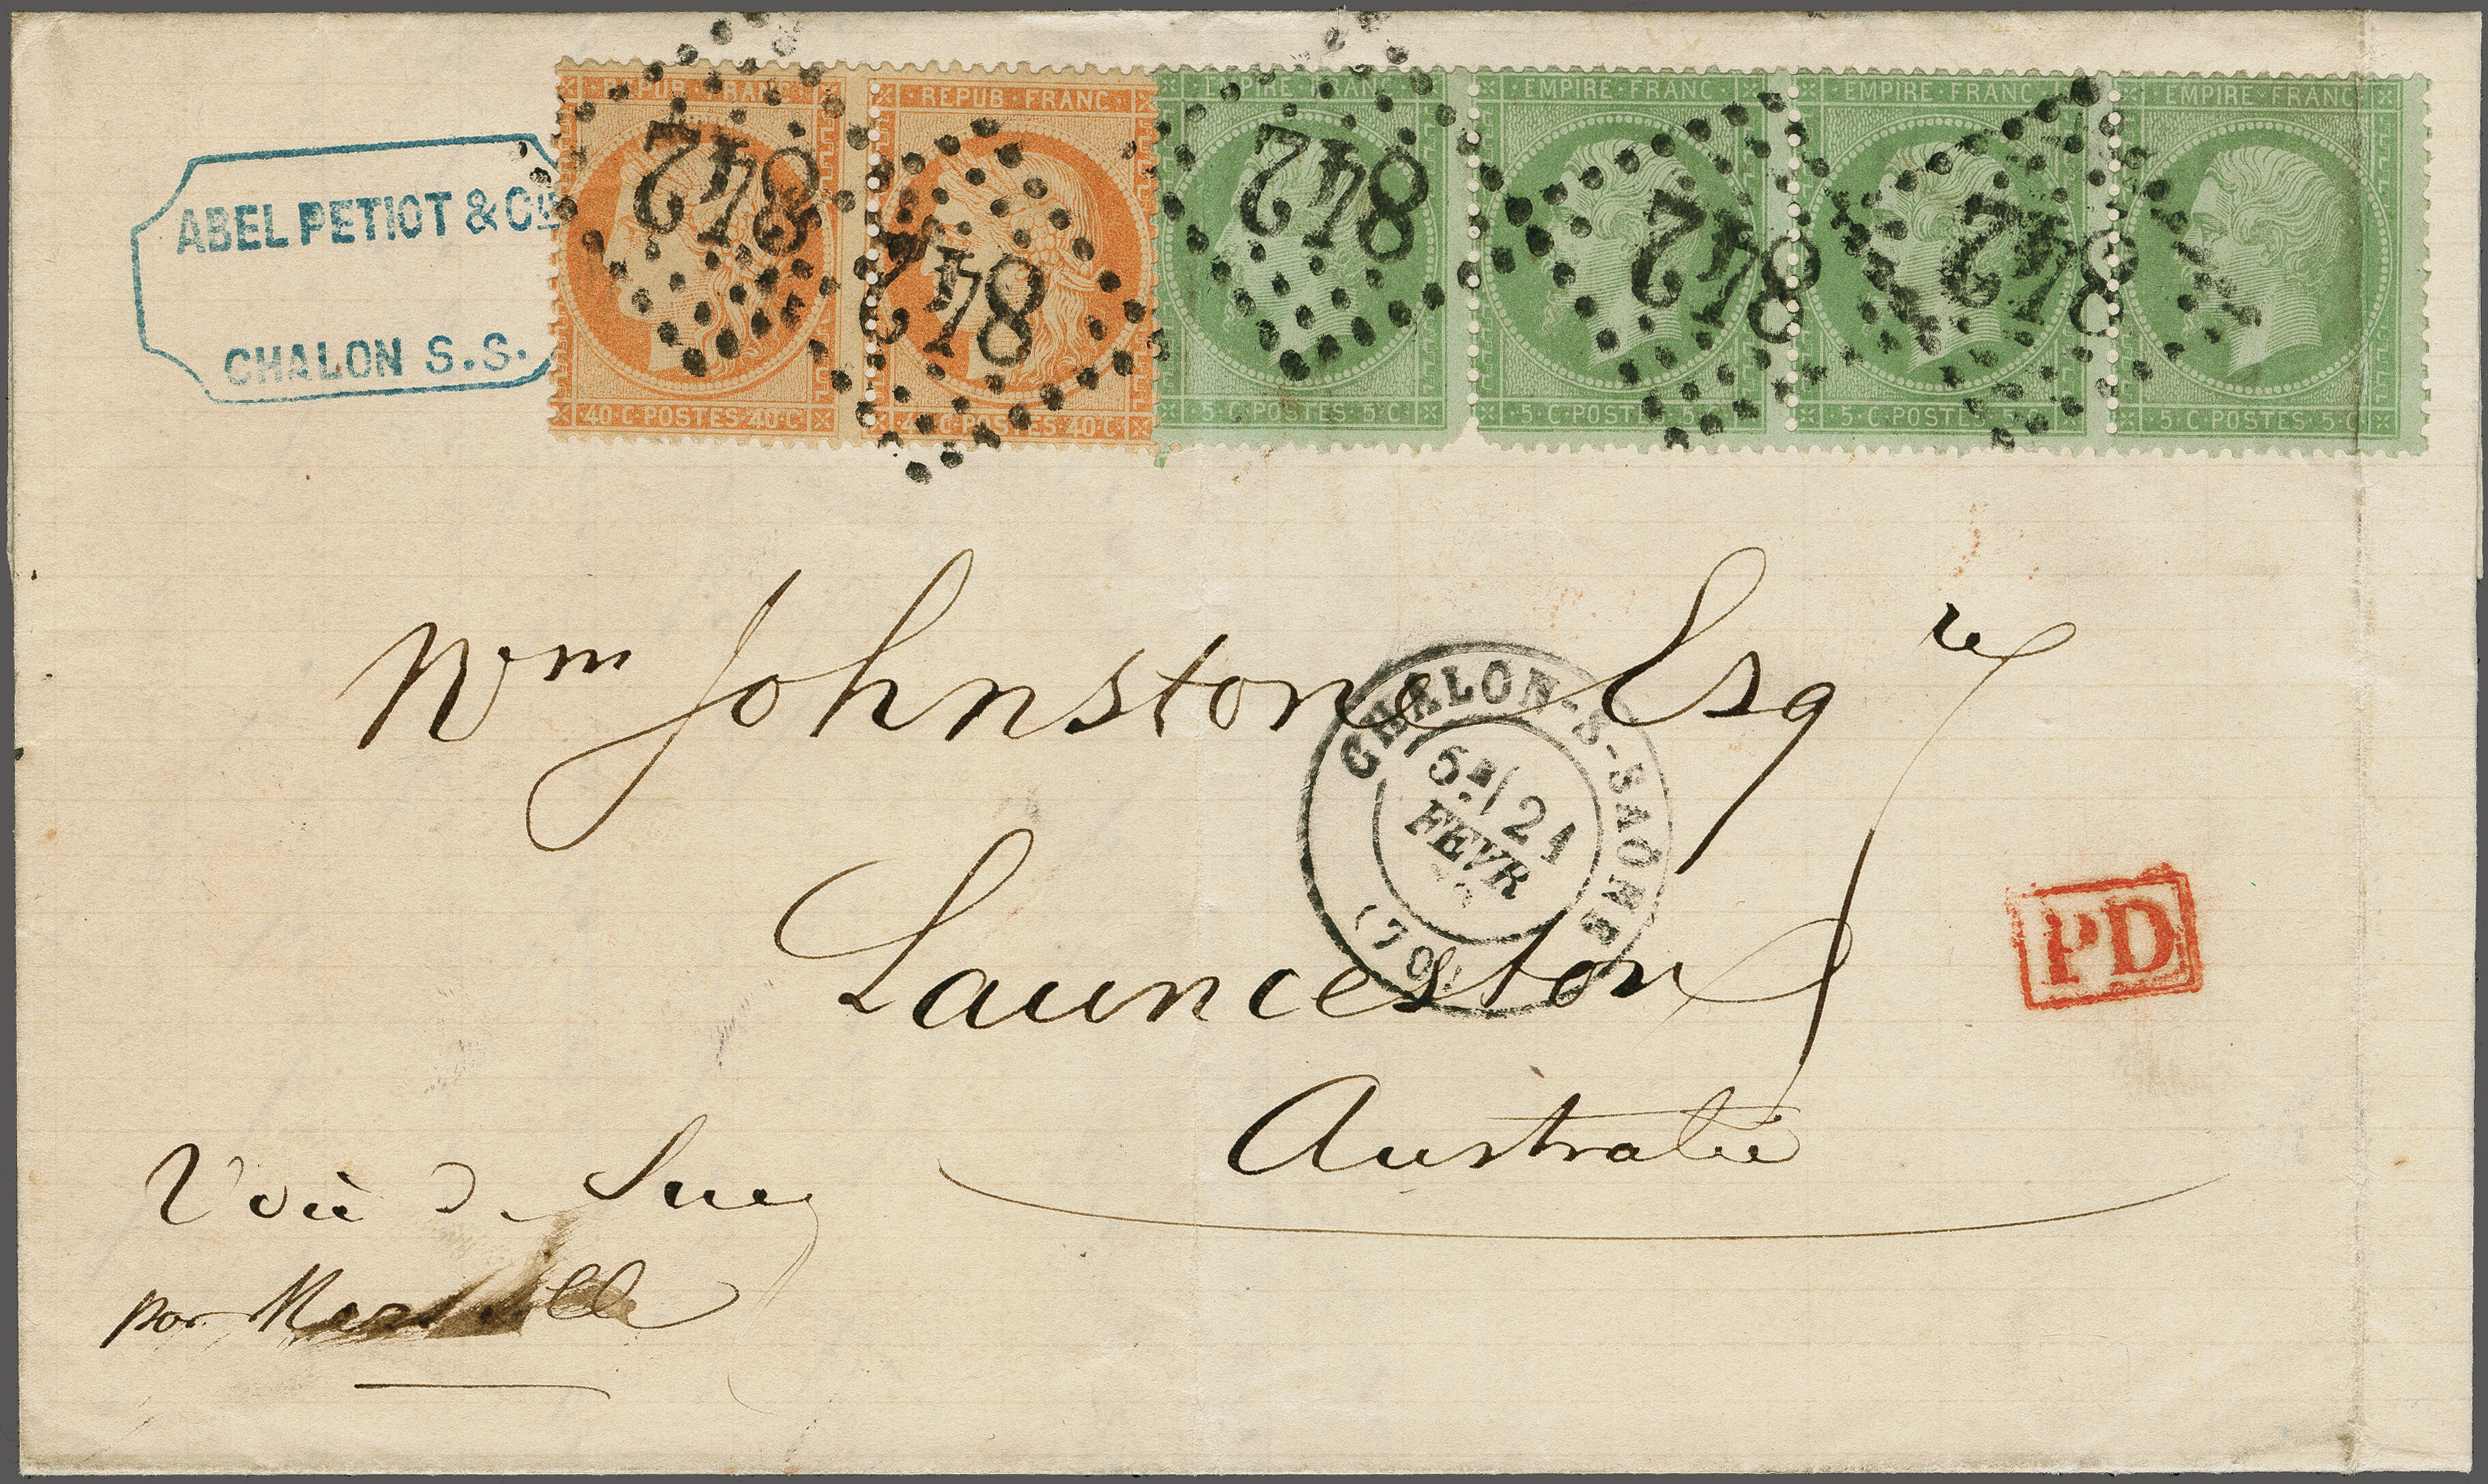 ABEL PETIOT & Cie
CHALON S.S.
REPUB·FRANC
40·C·POSTES·40·C
842
REPUB·FRANC
40·C·POSTES·40·C
842
EMPIRE·FRANC
5·C·POSTES·5·C
842
EMPIRE·FRANC
5·C·POSTES·5·C
842
EMPIRE·FRANC
5·C·POSTES·5·C
842
EMPIRE·FRANC
5·C·POSTES·5·C
Wm Johnstone Esqre
Launceston
Australie
CHALON-S-SAÔNE
5E/21
FEVR
(70)
PD
Voie de Suez
par Marseille